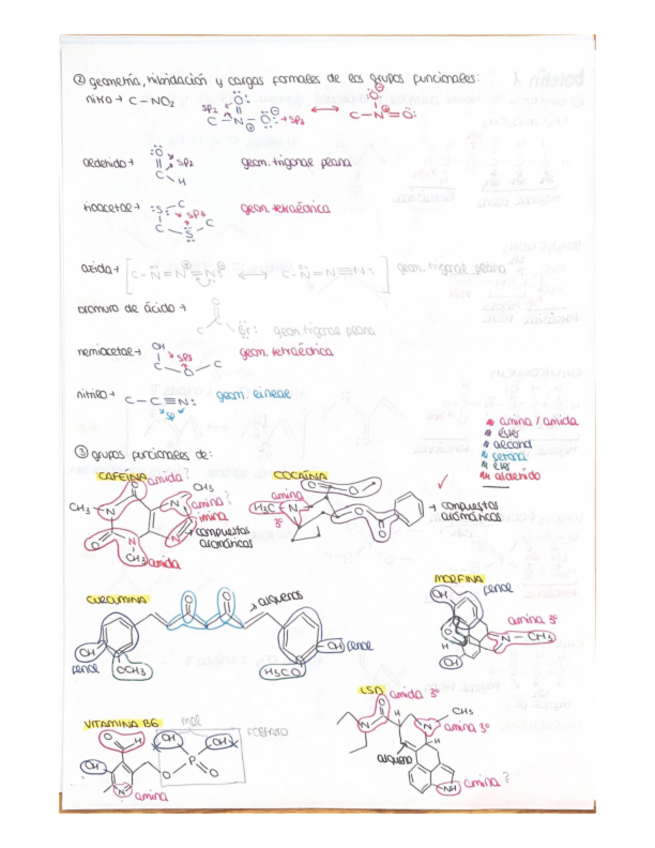 ② geometría, hibridación y cargas formales de los grupos funcionales:
nitro → C-NO₂
sp₂ C-N-O: → sp₃ ⟷ C-N=O:
aldehído → :O sp₂ C H geom. trigonal plana
tioacetal → :S-C sp₃ C-S-C geom. tetraédrica
azida → [C-N=N=N ⟷ C-N=N≡N:] geom. trigonal plana
bromuro de ácido →
O C Br: geom. trigonal plana
hemiacetal → OH sp₃ C-O-C geom. tetraédrica
nitrilo → C-C≡N: sp geom. lineal
amina / amida
éster
alcohol
cetona
éter
aldehído
③ grupos funcionales de:
CAFEÍNA amida?
CH₃ N O CH₃ N amina?
imina
N
O N CH₃ amida
compuestos aromáticos
COCAÍNA
amina
H₃C-N
3º
O O O O
→ compuestos aromáticos
CURCUMINA
O O → alquenos
OH fenol OCH₃ H₃CO OH fenol
MORFINA
OH fenol
amina 3º
O N-CH₃
H
OH
VITAMINA B6
O H
OH
N amina
mal
OH OH
O P O
FOSFATO
LSD amida 3º
O N
CH₃
N amina 3º
H H
alqueno
NH amina?